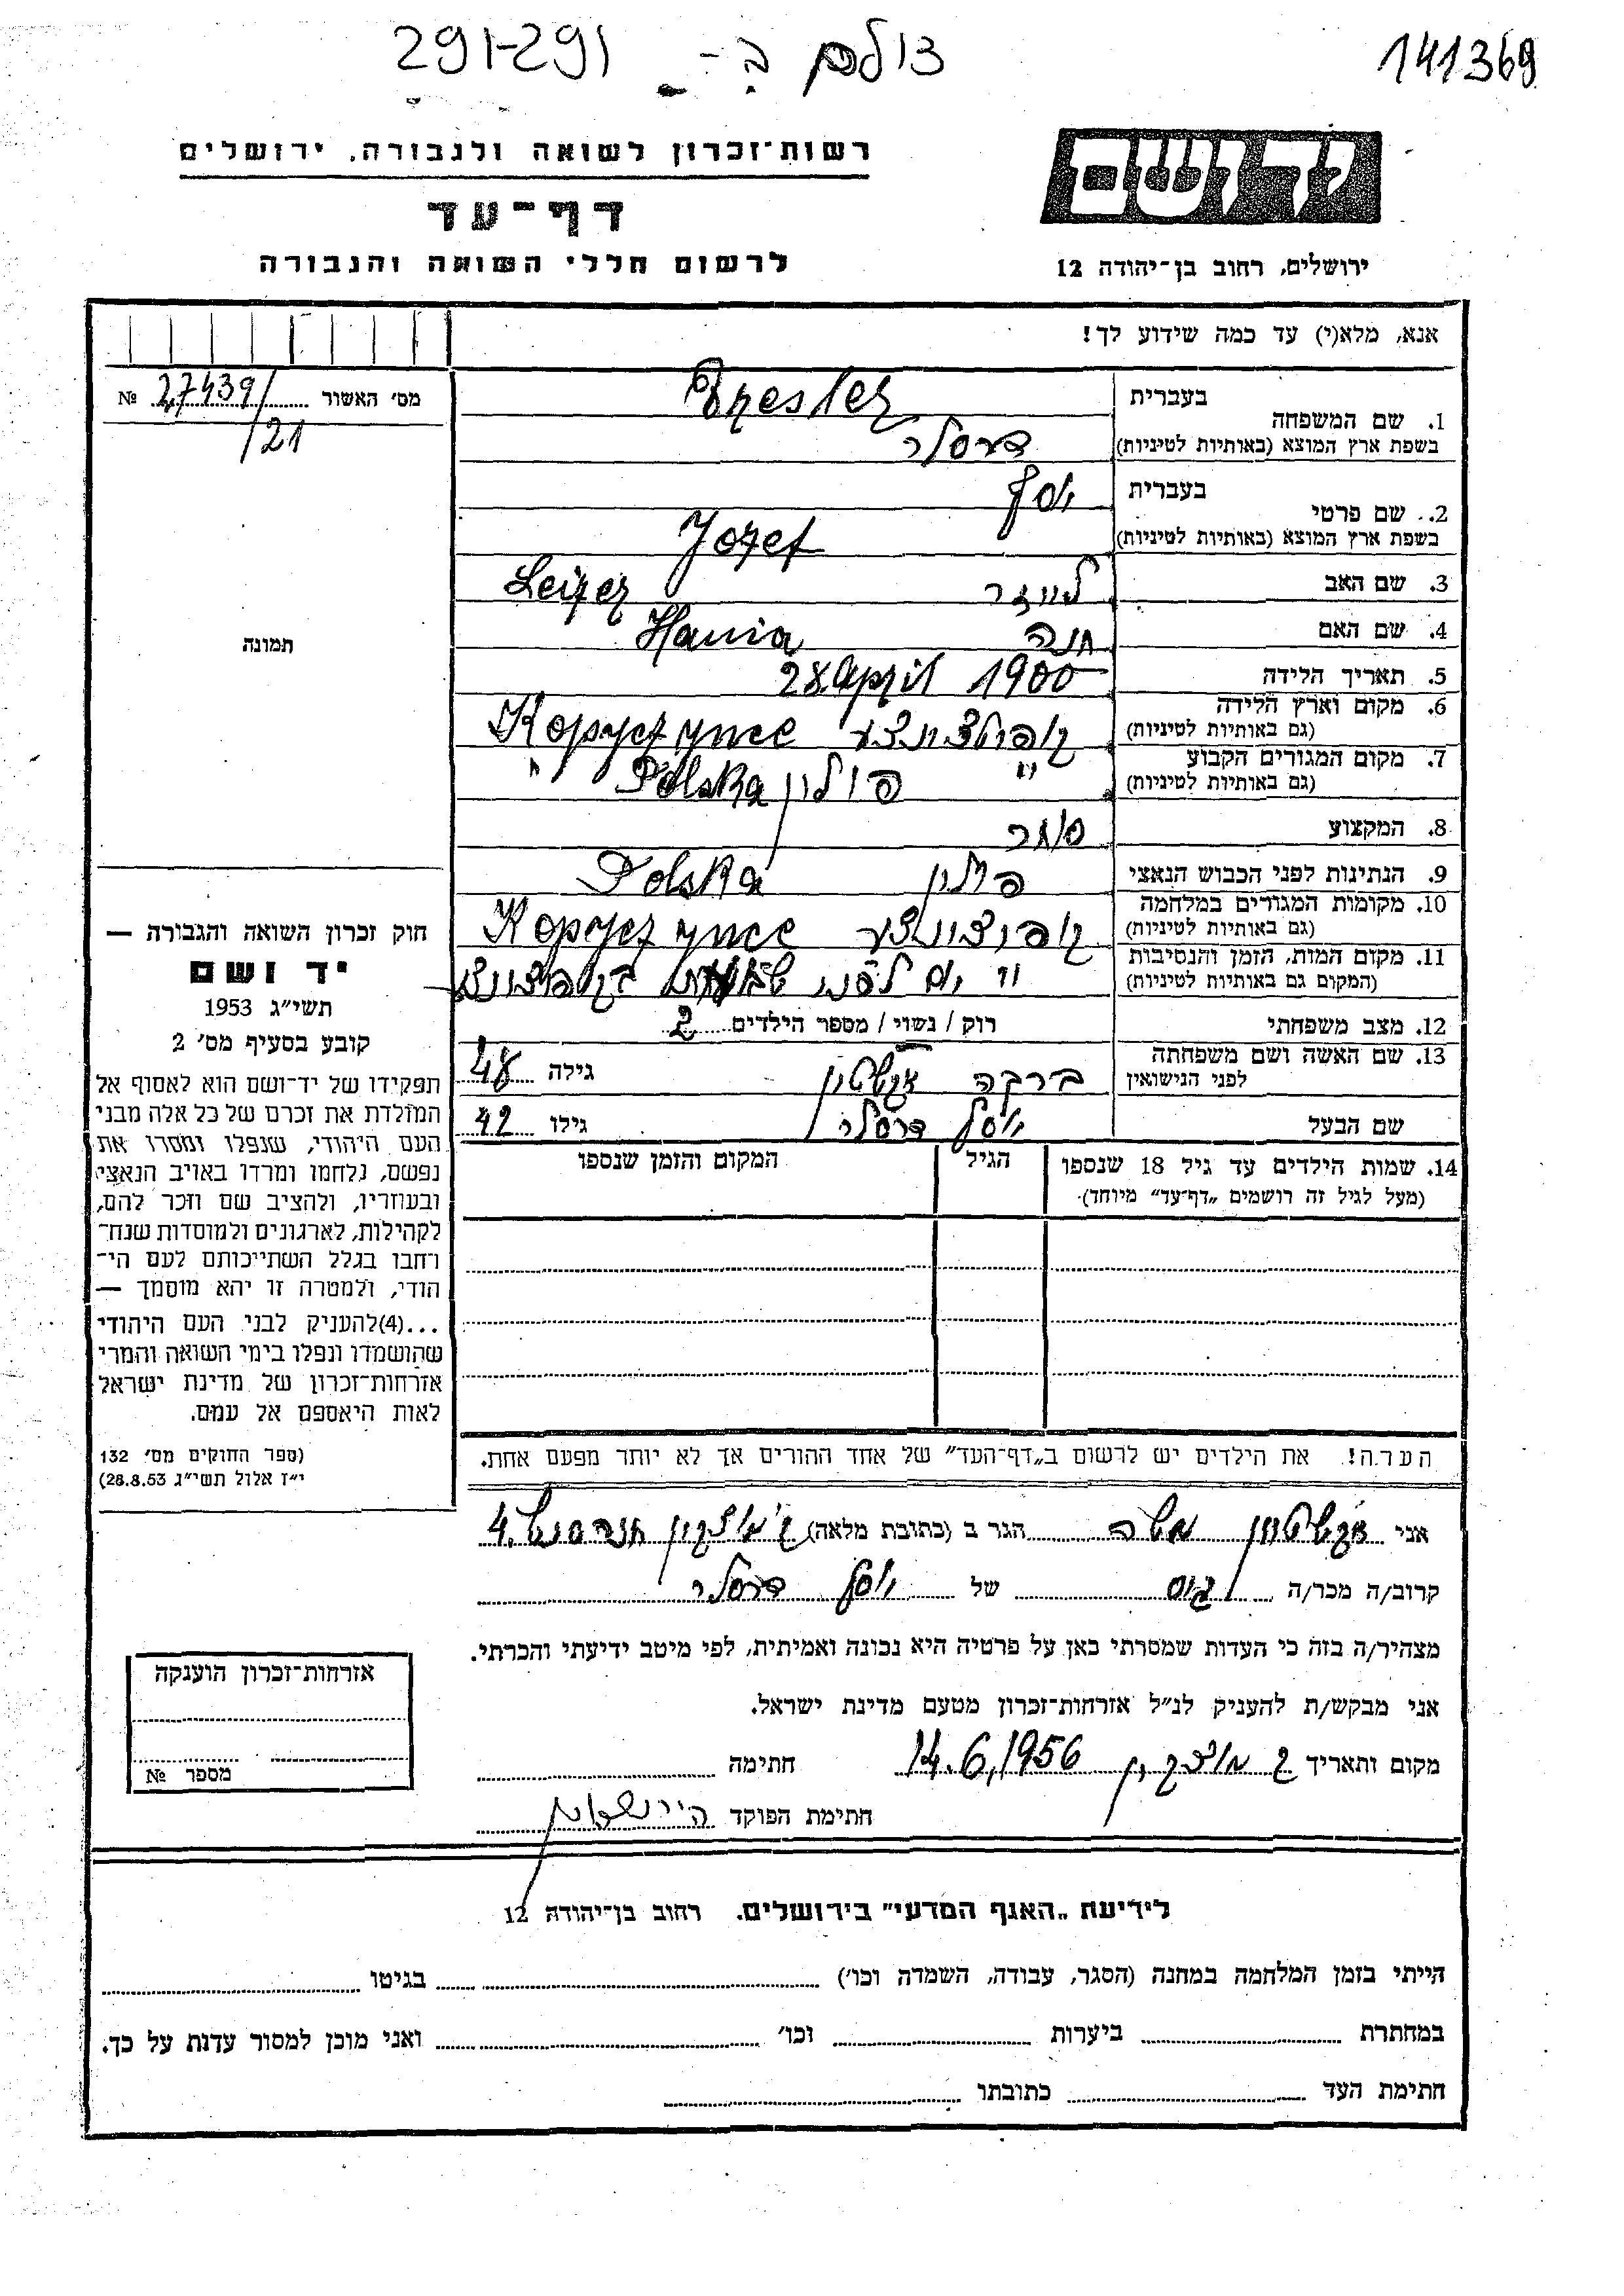 צולם ב- 291-291
141369
יד ושם
רשות־זכרון לשואה ולגבורה, ירושלים
דף־עד
לרשום חללי השואה והגבורה
ירושלים, רחוב בן־יהודה 12
אנא, מלא(י) עד כמה שידוע לך!
מס׳ האשור № 27439/
/21
תמונה
1. שם המשפחה
בעברית Dresler
בשפת ארץ המוצא (באותיות לטיניות) דרסלר
2. שם פרטי
בעברית יוסף
בשפת ארץ המוצא (באותיות לטיניות) Jozef
3. שם האב לייזר Leizer
4. שם האם חנה Hania
5. תאריך הלידה 28 April 1900
6. מקום וארץ הלידה Kopyczynce
(גם באותיות לטיניות)
7. מקום המגורים הקבוע " פולין Polska "
(גם באותיות לטיניות)
8. המקצוע סוחר
9. הנתינות לפני הכבוש הנאצי פולין Polska
10. מקומות המגורים במלחמה קופיצינצע Kopyczynce
(גם באותיות לטיניות)
11. מקום המות, הזמן והנסיבות יום לפני שבועות
(המקום גם באותיות לטיניות)
12. מצב משפחתי רוק / נשוי / מספר הילדים 2
13. שם האשה ושם משפחתה
לפני הנישואין ברקה גילה 48
שם הבעל יוסף דרסלר גילו 42
14. שמות הילדים עד גיל 18 שנספו הגיל המקום והזמן שנספו
(מעל לגיל זה רושמים „דף־עד״ מיוחד)
הערה! את הילדים יש לרשום ב„דף־העד״ של אחד ההורים אך לא יותר מפעם אחת.
חוק זכרון השואה והגבורה —
יד ושם
תשי״ג 1953
קובע בסעיף מס׳ 2
תפקידו של יד־ושם הוא לאסוף אל
המולדת את זכרם של כל אלה מבני
העם היהודי, שנפלו ומסרו את
נפשם, נלחמו ומרדו באויב הנאצי
ובעוזריו, ולהציב שם וזכר להם,
לקהילות, לארגונים ולמוסדות שנח־
רבו בגלל השתייכותם לעם הי־
הודי, ולמטרה זו יהא מוסמך —
...(4)להעניק לבני העם היהודי
שהושמדו ונפלו בימי השואה והמרי
אזרחות־זכרון של מדינת ישראל
לאות היאספם אל עמם.
(ספר החוקים מס׳ 132
י״ז אלול תשי״ג 28.8.53)
אני משה הגר ב (כתובת מלאה) ק׳ מוצקין 4
קרוב/ה מכר/ה גיס של יוסף דרסלר
מצהיר/ה בזה כי העדות שמסרתי כאן על פרטיה היא נכונה ואמיתית, לפי מיטב ידיעתי והכרתי.
אני מבקש/ת להעניק לנ״ל אזרחות־זכרון מטעם מדינת ישראל.
מקום ותאריך ק מוצקין 14.6.1956 חתימה
חתימת הפוקד
אזרחות־זכרון הוענקה
מספר №
לידיעת „האגף המדעי״ בירושלים. רחוב בן־יהודה 12
הייתי בזמן המלחמה במחנה (הסגר, עבודה, השמדה וכו׳) בגיטו
במחתרת ביערות וכו׳ ואני מוכן למסור עדות על כך.
חתימת העד כתובתו